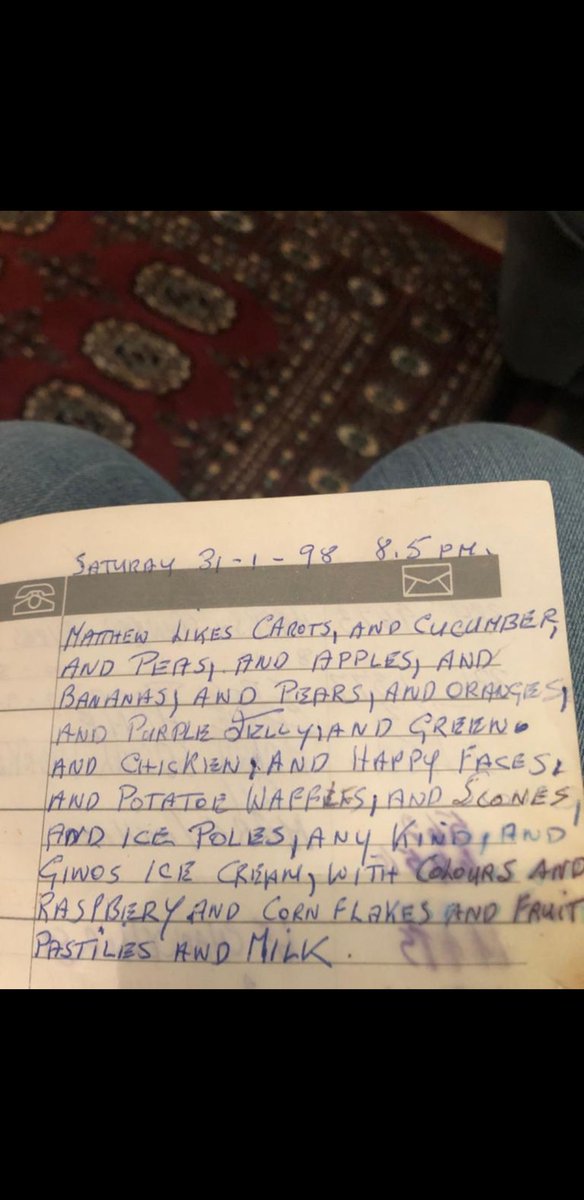 SATURAY 31-1-98 8.5 PM.
MATHEW LIKES CAROTS, AND CUCUMBER,
AND PEAS, AND APPLES, AND
BANANAS, AND PEARS, AND ORANGES,
AND PURPLE JELLY, AND GREEN.
AND CHICKEN, AND HAPPY FACES,
AND POTATOE WAFFLES, AND SCONES,
AND ICE POLES, ANY KIND, AND
GINOS ICE CREAM, WITH COLOURS AND
RASPBERY AND CORN FLAKES AND FRUIT
PASTILES AND MILK.